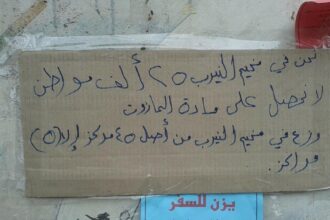 نحن في مخيم النيرب ٢٥ ألف مواطن
لا نحصل على مادة المازوت
وزع في مخيم النيرب من أصل ٤٥ مركز إلا (٥)
مراكز.
يزن للسفر